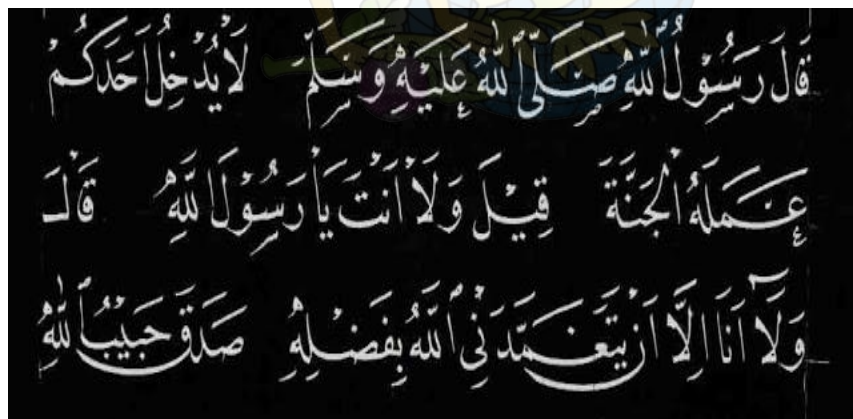 قَالَ رَسُوْلُ اللّٰهِ صَلَّى اللّٰهُ عَلَيْهِ وَسَلَّمَ لَا يُدْخِلُ اَحَدَكُمْ
عَمَلَهُ الْجَنَّةَ قِيْلَ وَلَا اَنْتَ يَا رَسُوْلَ اللّٰهِ قَالَ
وَلَآ اَنَا اِلَّا اَنْ يَتَغَمَّدَنِيَ اللّٰهُ بِفَضْلِهِ صَدَقَ حَبِيْبُ اللّٰهِ